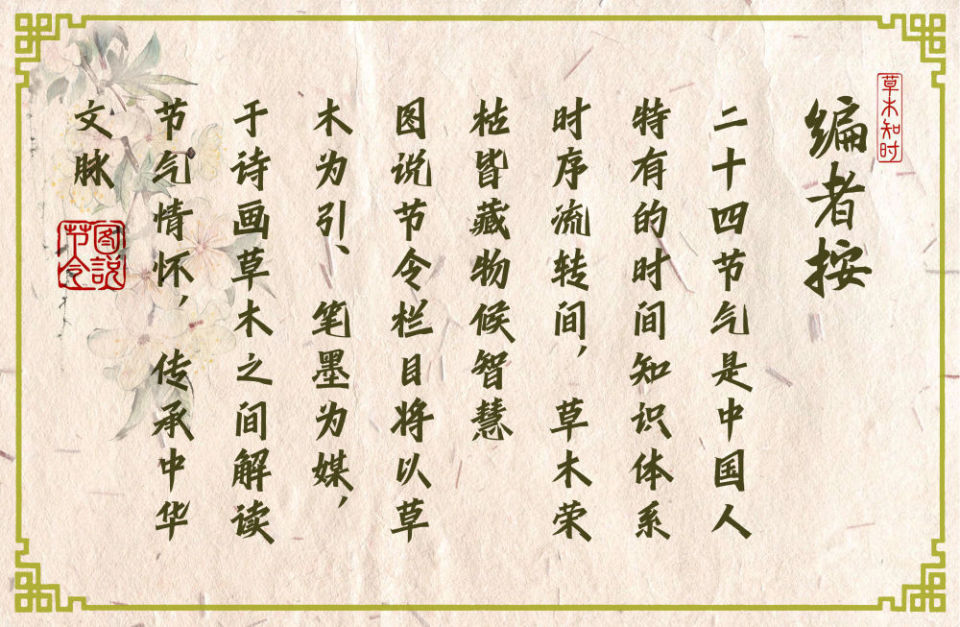 草木知时
编者按
二十四节气是中国人
特有的时间知识体系
时序流转间，草木荣
枯皆藏物候智慧
图说节令栏目将以草
木为引、笔墨为媒，
于诗画草木之间解读
节气情怀，传承中华
文脉
图说
节令